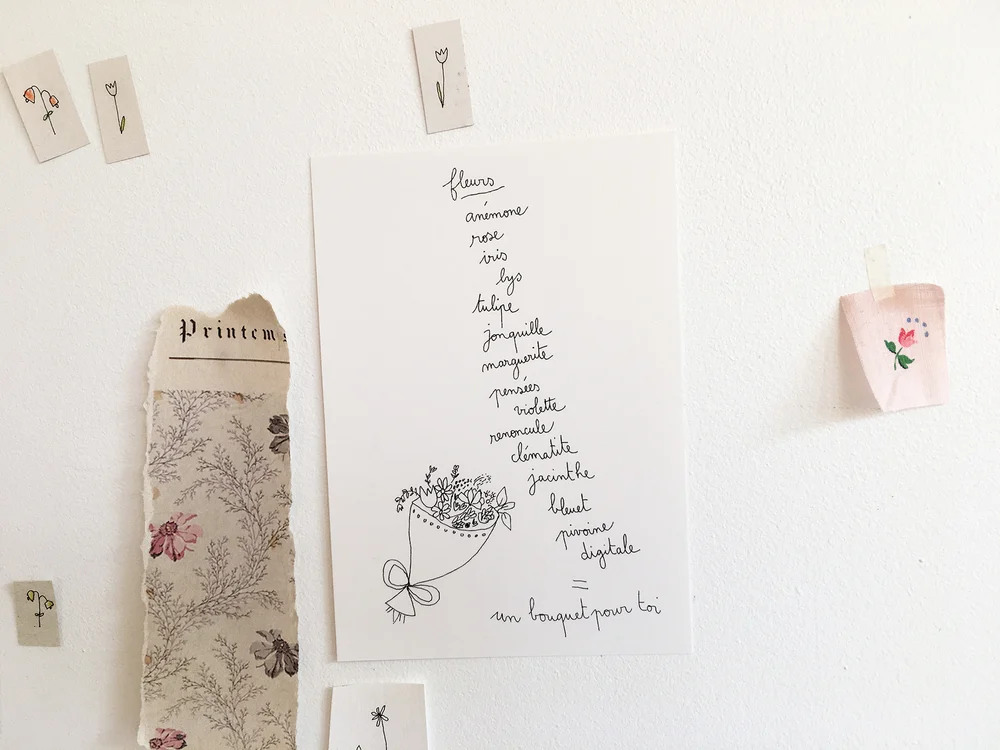 fleurs
anémone
rose
iris
lys
tulipe
jonquille
marguerite
pensées
violette
renoncule
clématite
jacinthe
bleuet
pivoine
digitale
=
un bouquet pour toi
Printems